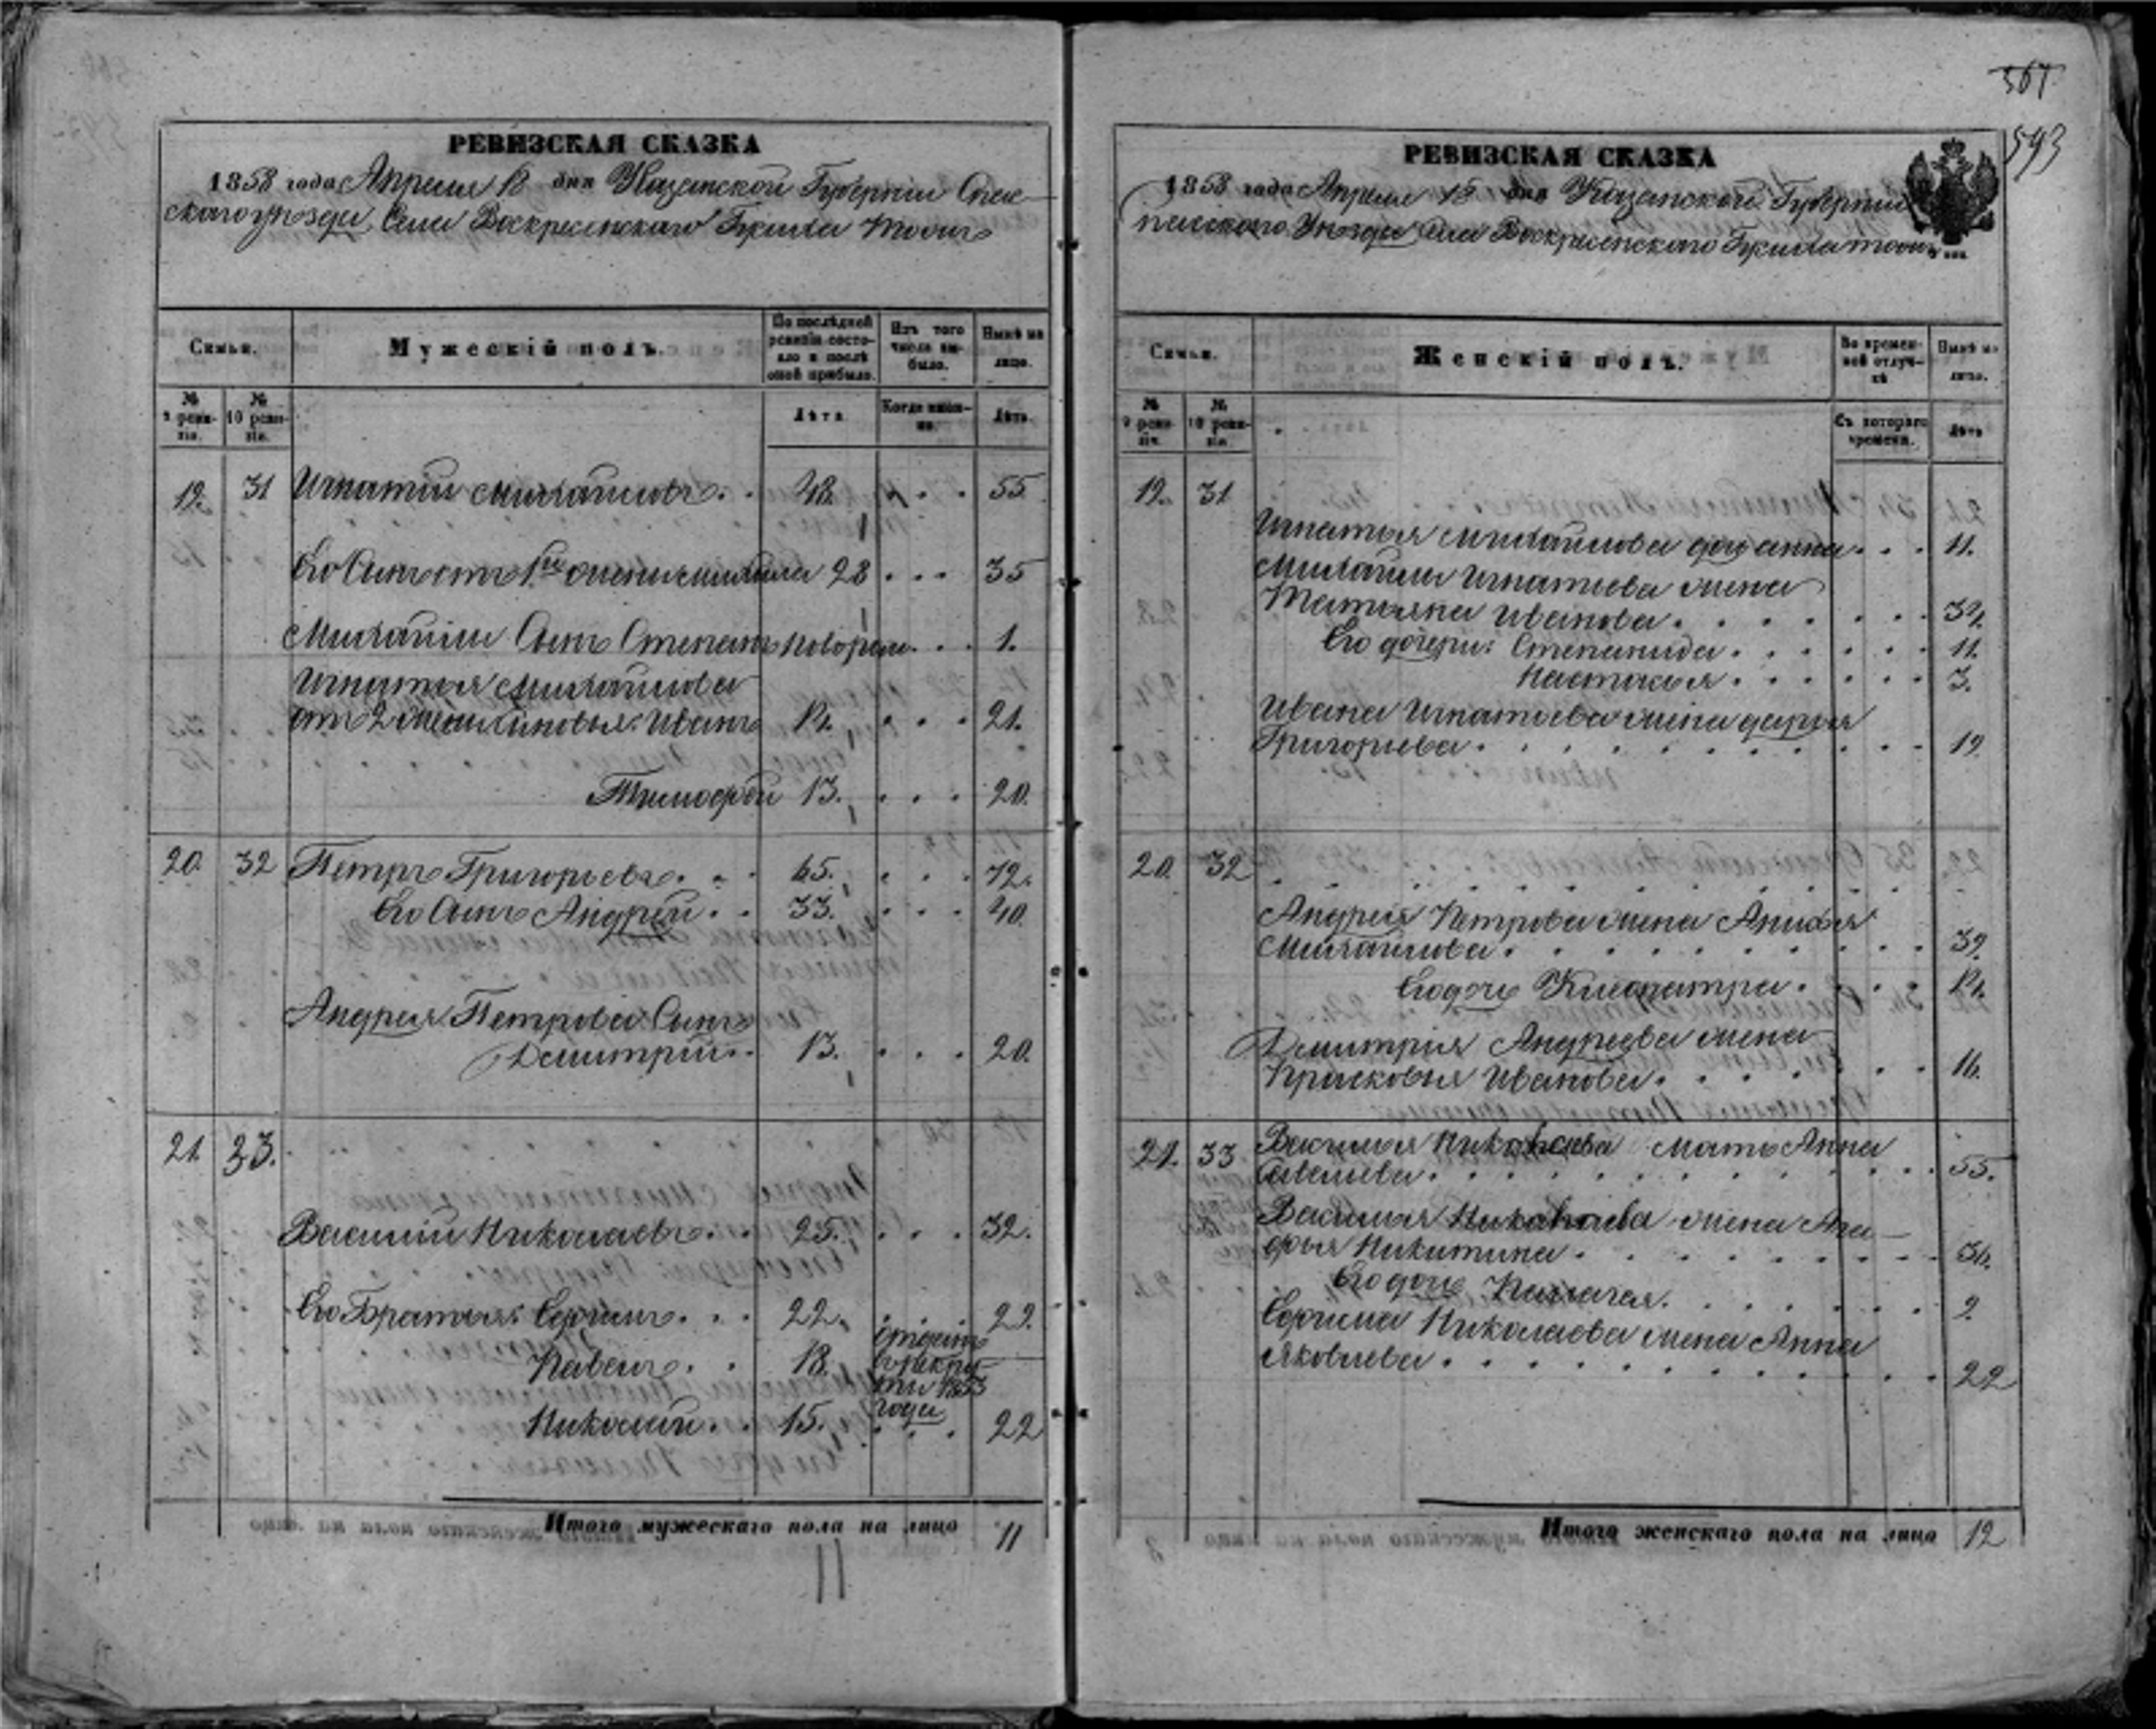 РЕВИЗСКАЯ СКАЗКА
1858 года Апреля 18 дня Казанской Губернии Спас-
скаго уѣзда Села Воскресенскаго Букила тожъ
Семьи.
Мужескій полъ.
По послѣдней ревизіи состояло и послѣ оной прибыло.
Изъ того числа выбыло.
Нынѣ на лицо.
№ 9 ревизіи.
№ 10 ревизіи.
Лѣта
Когда именно.
Лѣта.
19. 31 Игнатій Михайловъ 48. 55
Его Сынъ отъ 1й жены Михаила 28 35
Михаилы Сынъ Степанъ новорож. 1.
Игнатья Михайлова
отъ 2 жены Сыновья: Иванъ 14. 21.
Тимофей 13. 20.
20. 32 Петръ Григорьевъ 65. 72.
Его Сынъ Андрей 33. 40.
Андрея Петрова Сынъ
Дмитрій 13. 20.
21. 33.
Василій Николаевъ 25. 32.
Его Братья: Сергей 22. 29.
Павелъ 18.
въ рекру-
ты 1853
года
Николай 15. 22
Итого мужескаго пола на лицо 11
11
567
593
РЕВИЗСКАЯ СКАЗКА
1858 года Апреля 18 дня Казанской Губерніи
Уѣзда Села Воскресенскаго тожъ
Семьи.
Женскій полъ.
Во временной отлучкѣ
Нынѣ на лицо.
№ 9 ревизіи.
№ 10 ревизіи.
Съ котораго времени.
Лѣта
19. 31
Игнатья Михайлова дочь Анна 11.
Михаилы Игнатьева жена
Татьяна Иванова 34.
Его дочери: Степанида 11.
Настасья 3.
Ивана Игнатьева жена Дарья
Григорьева 19
20. 32
Андрея Петрова жена
Михайлова 39.
Его дочь Клеопатра 14.
Дмитрія Андреева жена
Прасковья Иванова 16.
21. 33 Василья Николаева Мать Анна
55.
Василья Николаева жена Ага-
фья Никитина 36.
Его дочь Пелагея 2
Сергея Николаева жена Анна
Яковлева 22
Итого женскаго пола на лицо 12